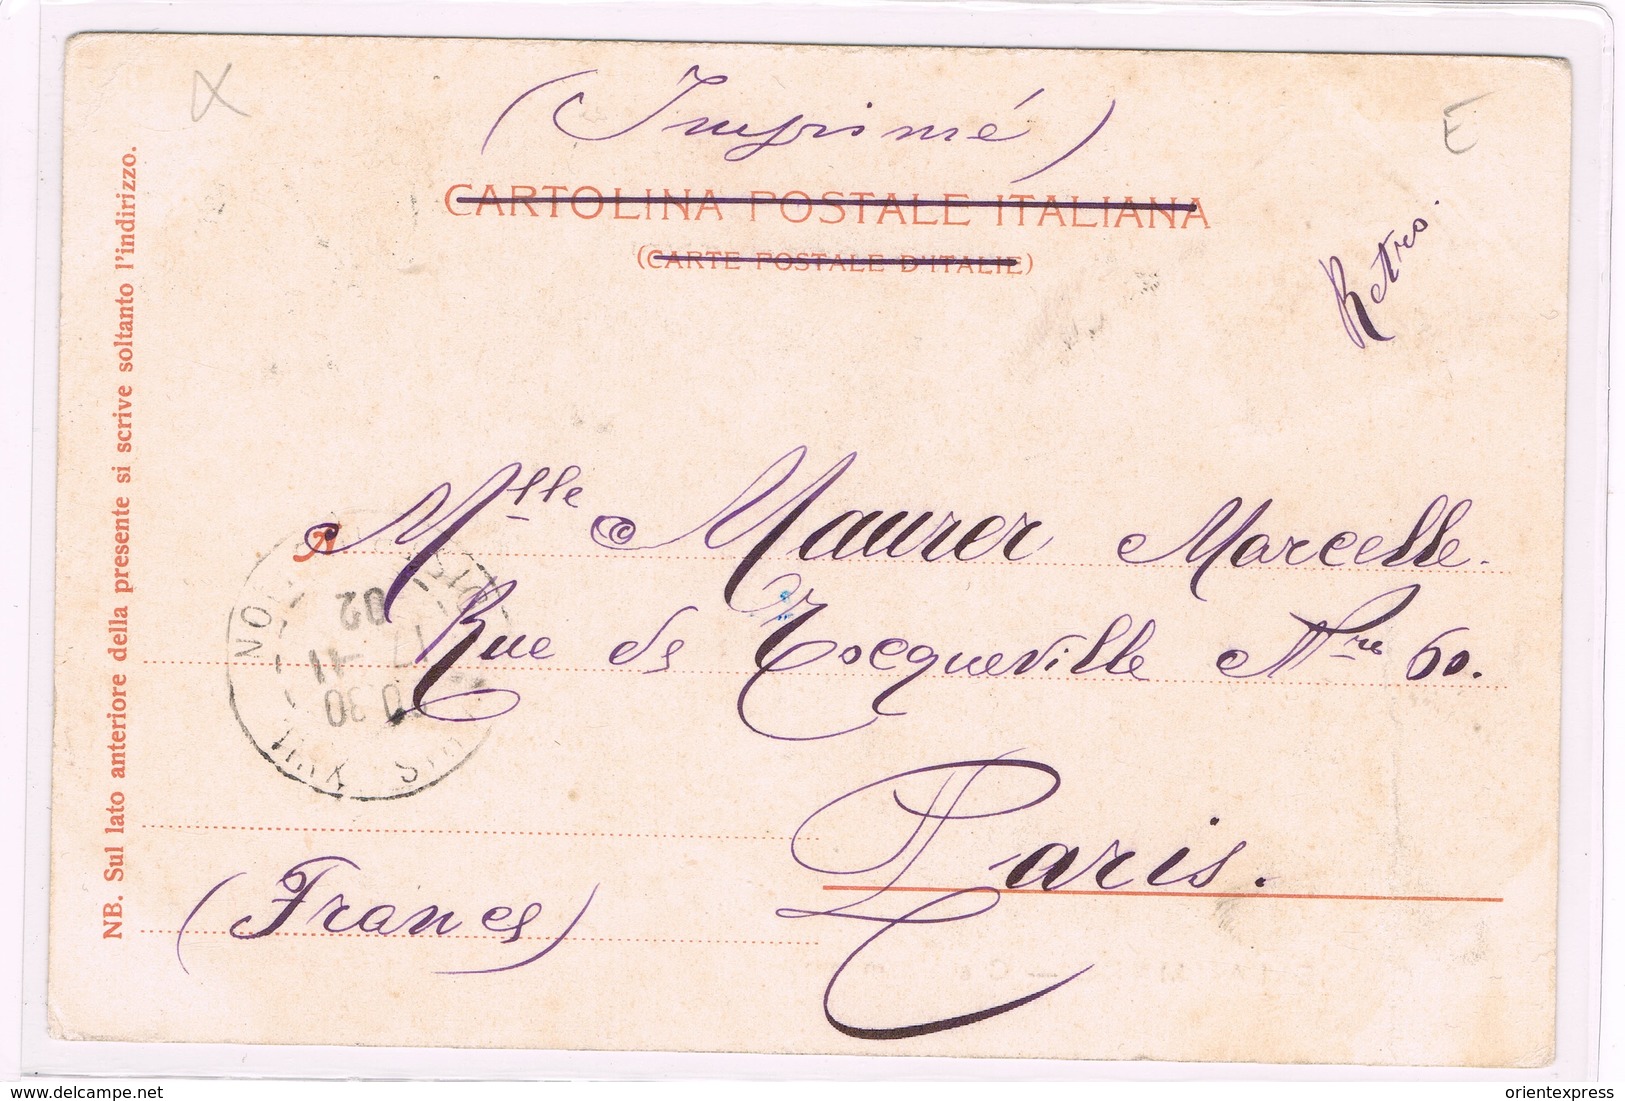 (Imprimé)
CARTOLINA POSTALE ITALIANA
(CARTE POSTALE D'ITALIE)
Retro.
E
NB. Sul lato anteriore della presente si scrive soltanto l'indirizzo.
A Mlle Maurer Marcelle.
Rue de Tocqueville Nre 60.
Paris.
(France)
02
17 -11
0 30
delcampe.net
orientexpress